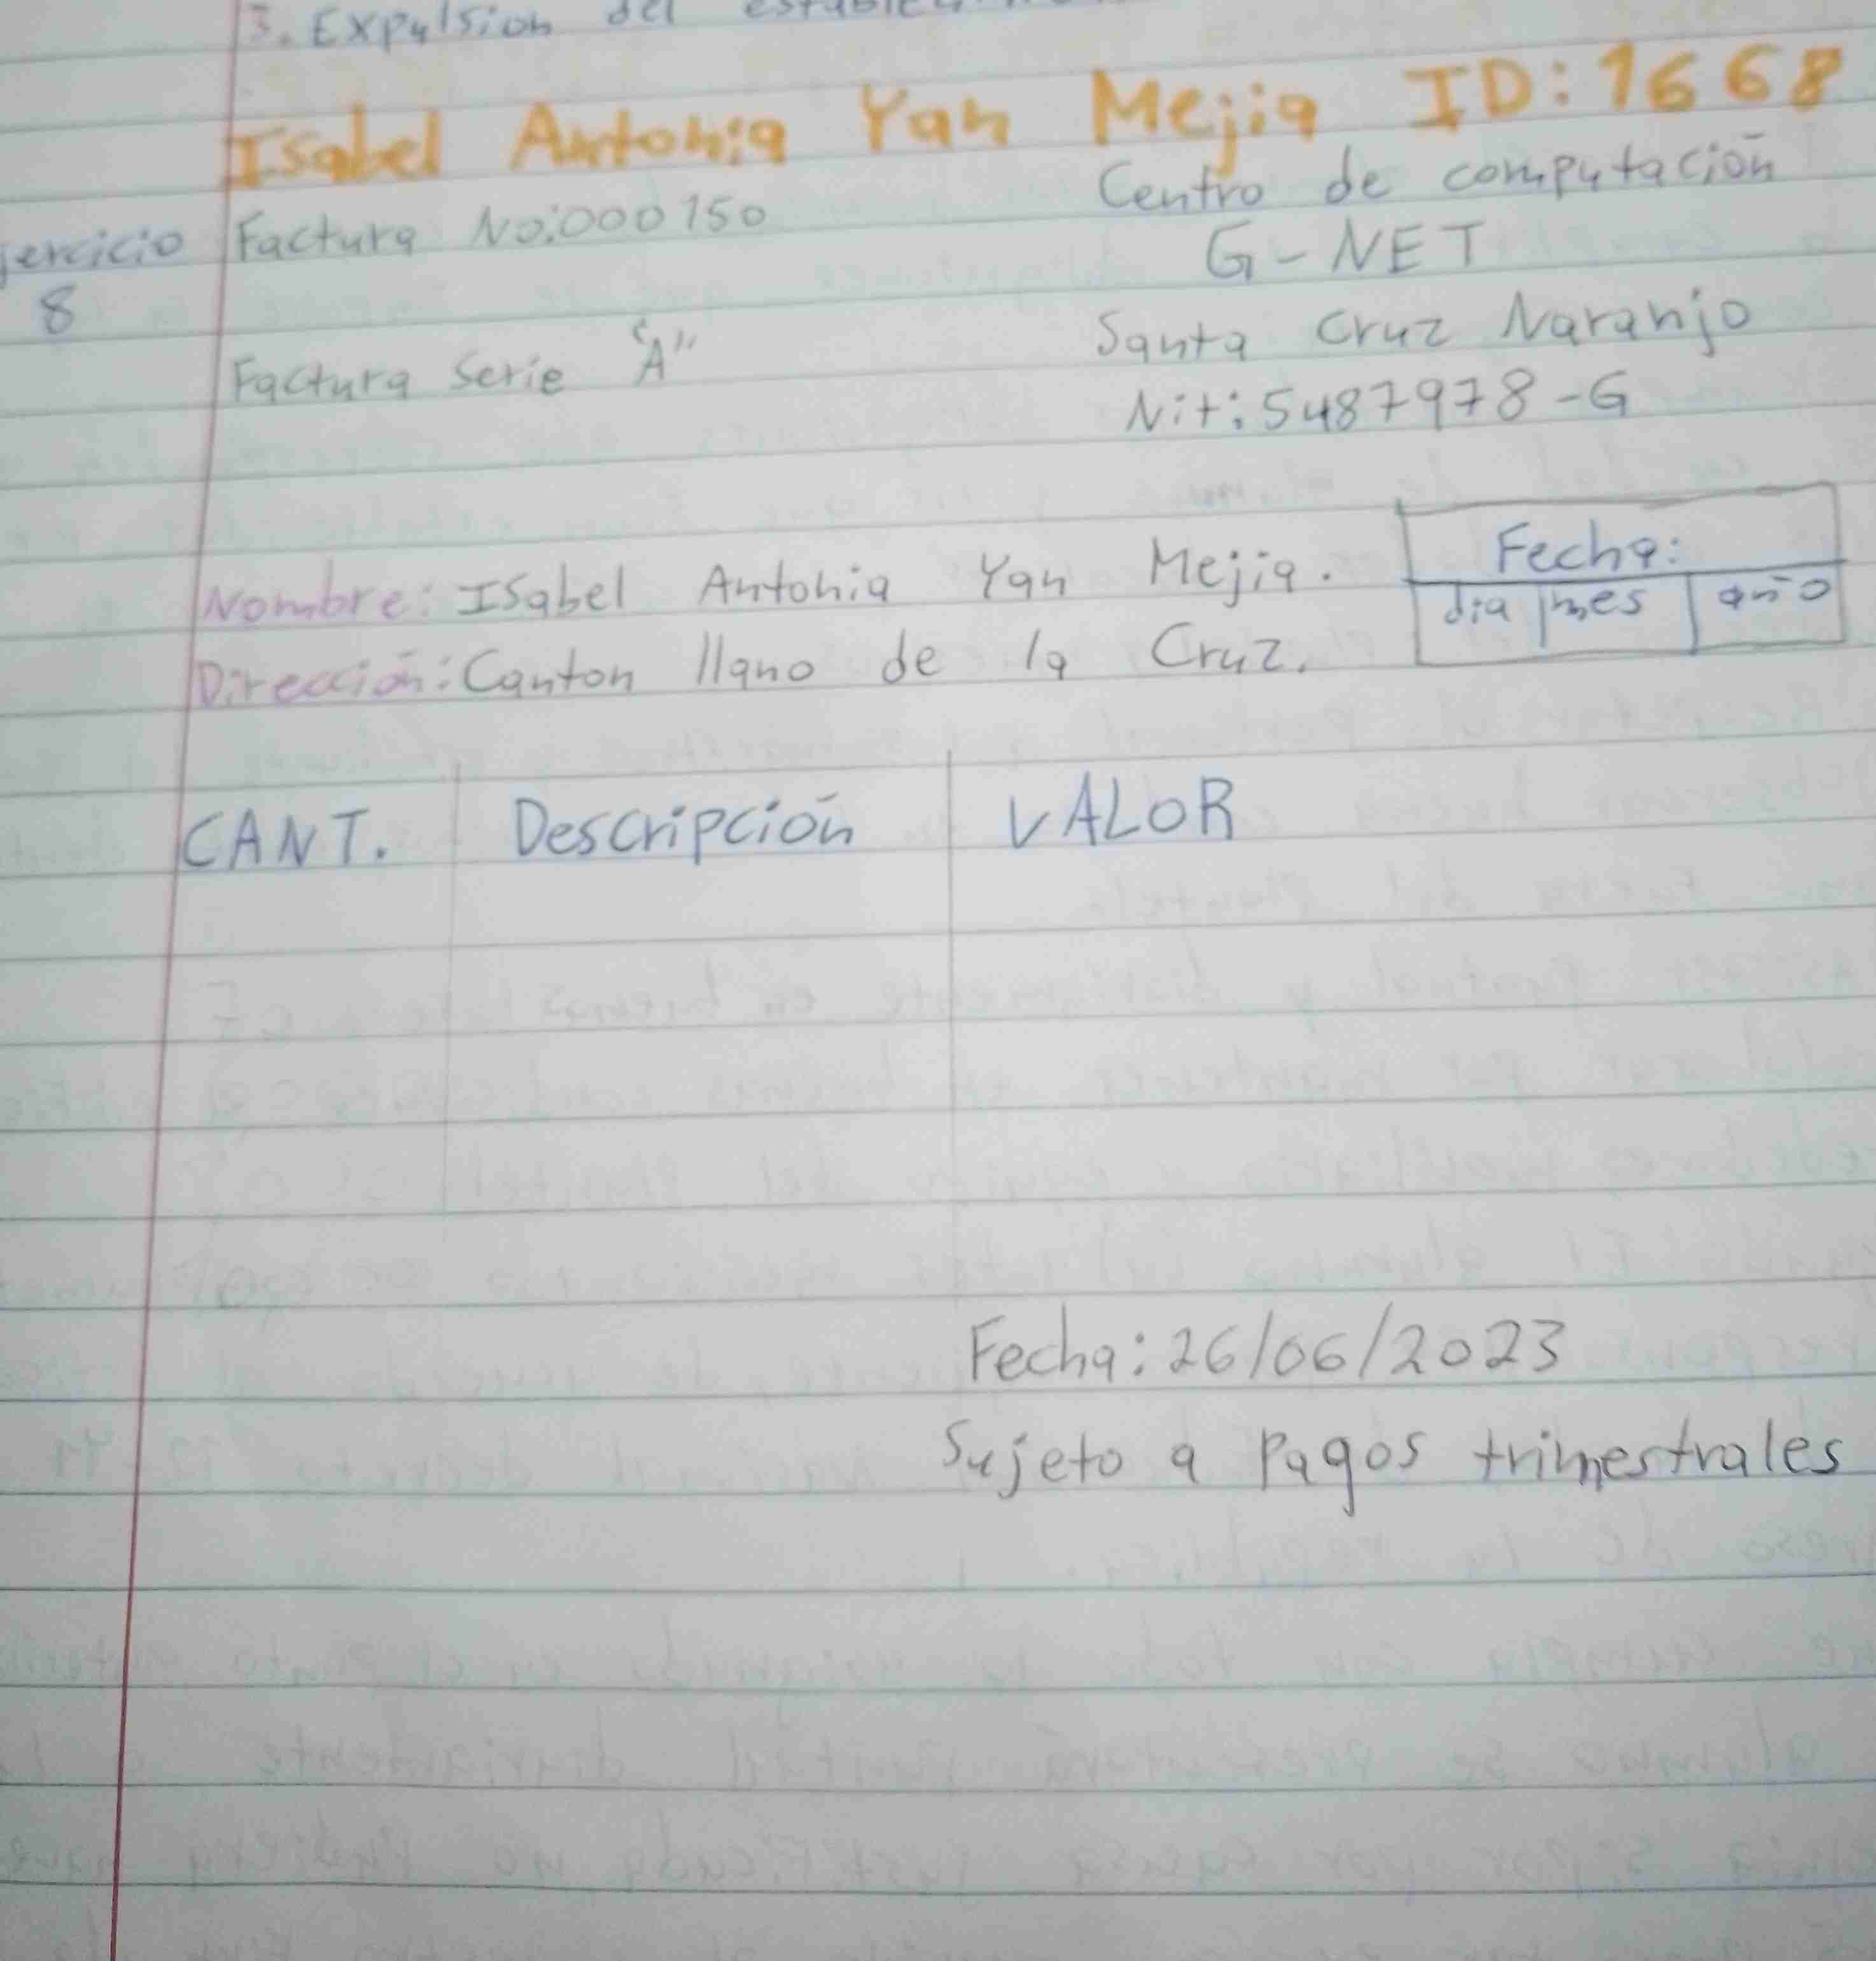 3. Expulsion del
Isabel Antonia Yan Mejia ID:1668
Centro de computación
ejercicio Factura No:000150
G-NET
8
Santa Cruz Naranjo
Factura Serie "A"
Nit: 5487978-G
Fecha:
Nombre: Isabel Antonia Yan Mejia.
dia mes año
Dirección: Canton llano de la Cruz.
CANT. Descripción VALOR
Fecha: 26/06/2023
Sujeto a Pagos trimestrales